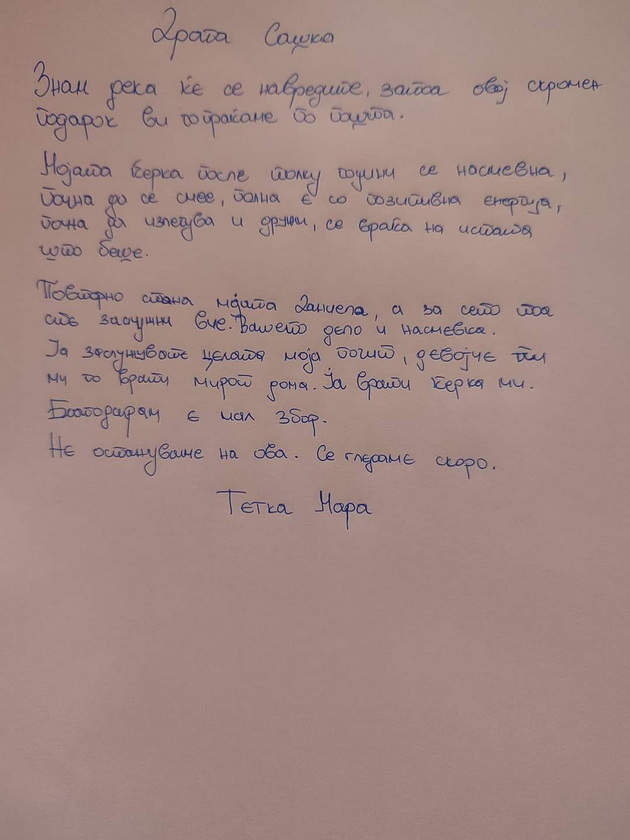 Драга Сашка
Знам дека ќе се навредите, затоа овој скромен
подарок ви го праќаме по пошта.
Мојата ќерка после толку години се насмевна,
почна да се смее, полна е со позитивна енергија,
почна да излегува и други, се враќа на истата
што беше.
Повторно стана мојата Даниела, а за сето тоа
сте заслужни вие. Вашето дело и насмевка.
Ја заслужувате целата моја почит, девојче ти
ми го врати мирот дома. Ја врати ќерка ми.
Благодарам е мал збор.
Не остануваме на ова. Се гледаме скоро.
Тетка Мара